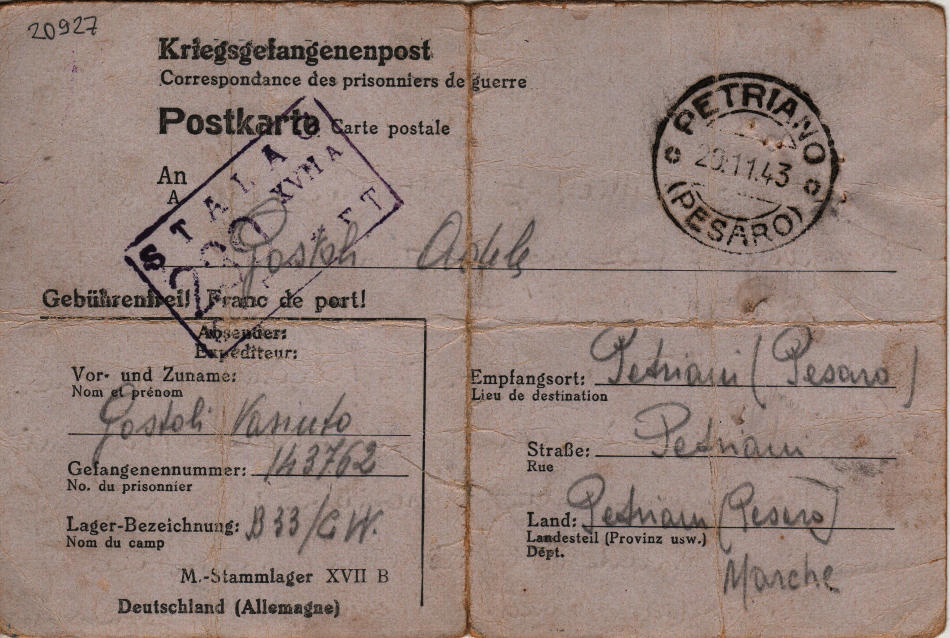 20927
Kriegsgefangenenpost
Correspondance des prisonniers de guerre
Postkarte Carte postale
PETRIANO
29.11.43
(PESARO)
STALAG
XVII A
An
A
Gostoli Adele
Gebührenfrei! Franc de port!
Absender:
Expéditeur:
Vor- und Zuname:
Nom et prénom
Gostoli
Gefangenennummer: 143762
No. du prisonnier
Lager-Bezeichnung: B 33/G.W.
Nom du camp
M.-Stammlager XVII B
Deutschland (Allemagne)
Empfangsort: Petriani (Pesaro)
Lieu de destination
Straße: Petriani
Rue
Land: Petriani (Pesaro)
Landesteil (Provinz usw.)
Dépt.
Marche